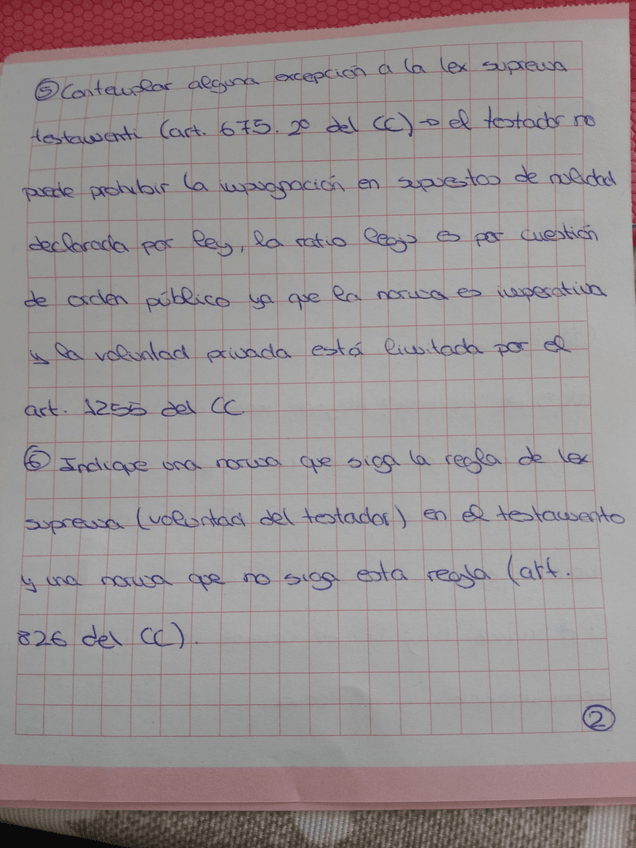 ⑤ Contemplar alguna excepción a la lex suprema
testamenti (art. 675. 2º del CC) → el testador no
puede prohibir la impugnación en supuestos de nulidad
declarada por ley, la ratio legis es por cuestión
de orden público ya que la norma es imperativa
y la voluntad privada está limitada por el
art. 1255 del CC
⑥ Indique una norma que siga la regla de lex
suprema (voluntad del testador) en el testamento
y una norma que no siga esta regla (art.
826 del CC).
②